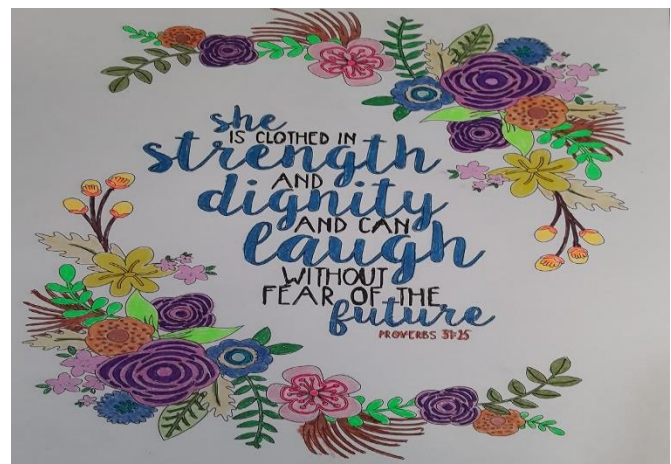 she
IS CLOTHED IN
strength
AND
dignity
AND CAN
laugh
WITHOUT
FEAR OF THE
future
PROVERBS 31:25